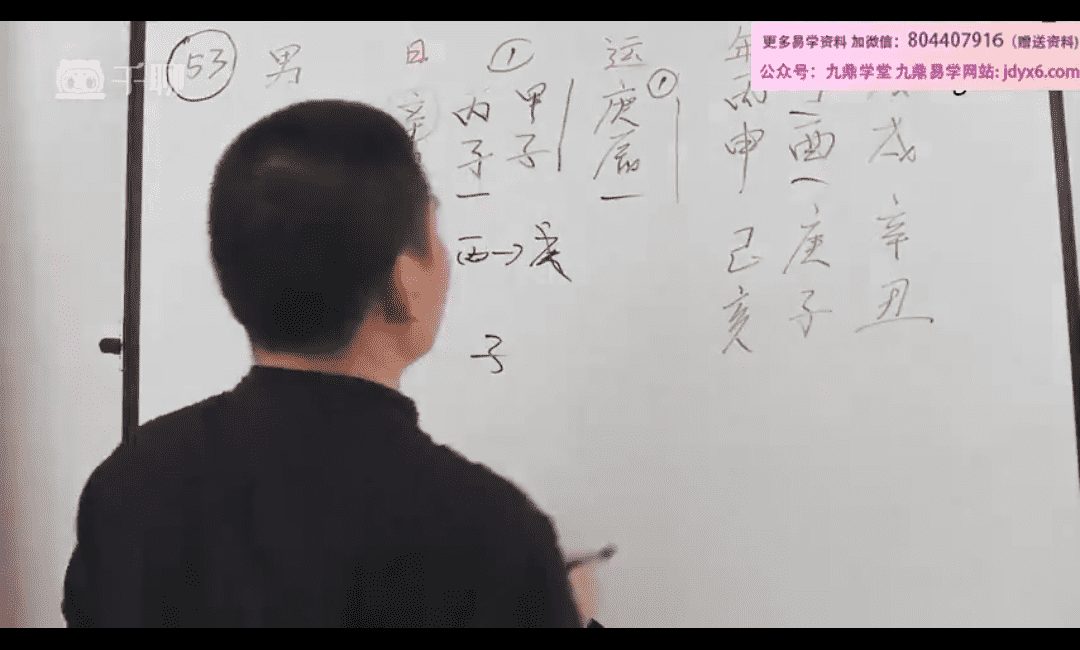 更多易学资料 加微信：804407916（赠送资料）
公众号：九鼎学堂 九鼎易学网站: jdyx6.com
千聊
53 男 日 ① 运 年
丙 甲 庚 ① 丙
子 子 辰 申 酉 戌
酉→癸
子
己 庚 辛
亥 子 丑